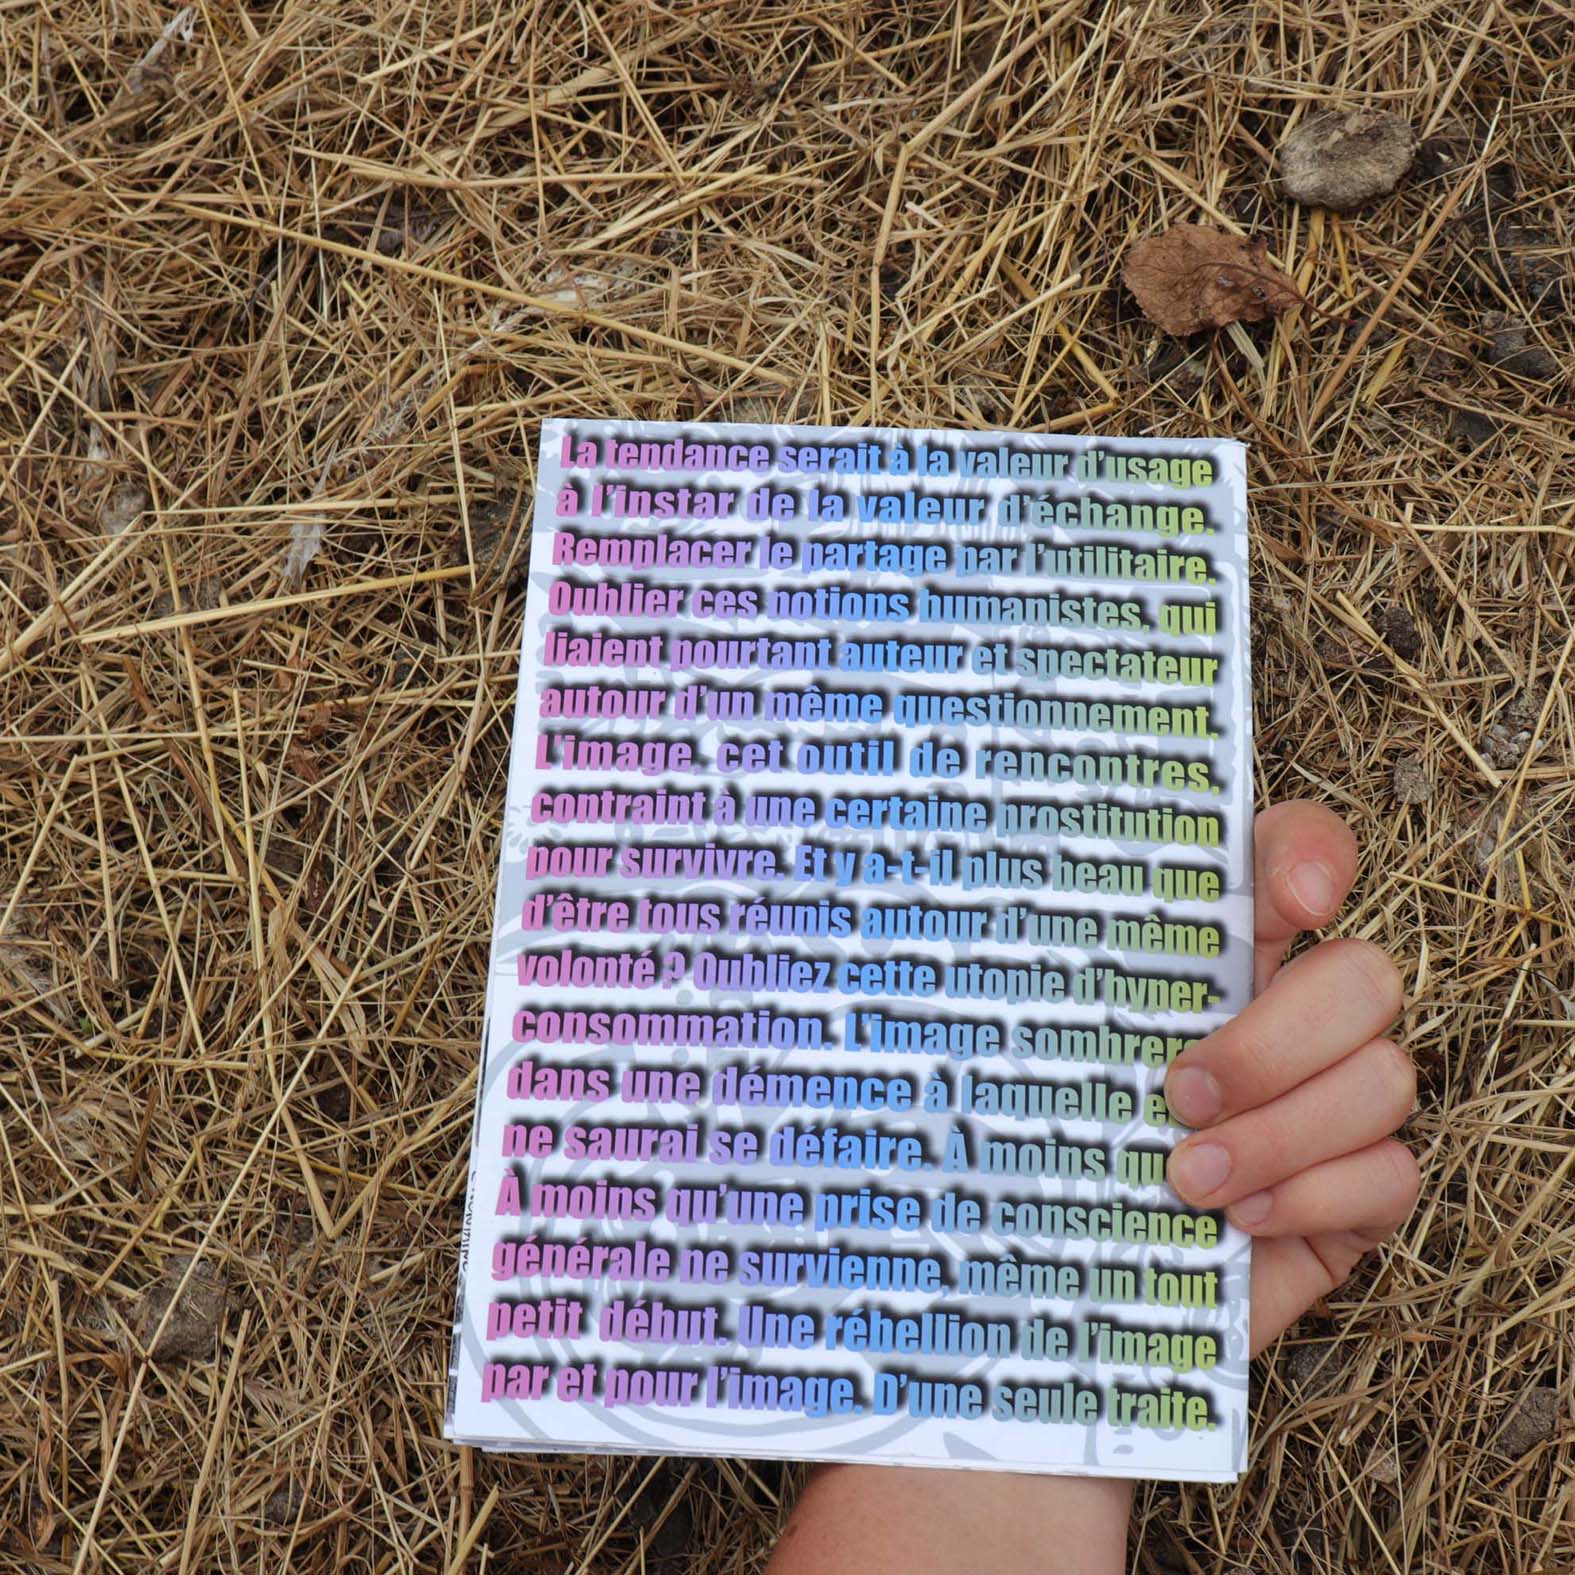 La tendance serait à la valeur d’usage
à l’instar de la valeur d’échange.
Remplacer le partage par l’utilitaire.
Oublier ces notions humanistes, qui
liaient pourtant auteur et spectateur
autour d’un même questionnement.
L’image, cet outil de rencontres,
contraint à une certaine prostitution
pour survivre. Et y a-t-il plus beau que
d’être tous réunis autour d’une même
volonté ? Oubliez cette utopie d’hyper-
consommation. L’image sombrera
dans une démence à laquelle
ne saurai se défaire. À moins que
À moins qu’une prise de conscience
générale ne survienne, même un tout
petit début. Une rébellion de l’image
par et pour l’image. D’une seule traite.